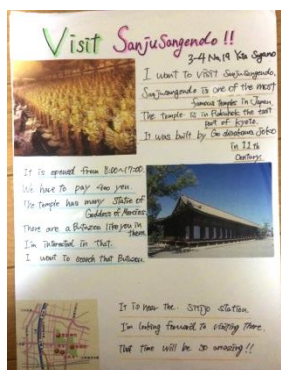 Visit Sanjusangendo !!
3-4 No.19
I want to visit Sanjusangendo.
Sanjusangendo is one of the most
famous temples in Japan.
The temple is in the east
part of Kyoto.
It was built by
in 11th
century.
It is opened from 8:00~17:00.
We have to pay yen.
The temple has many statue of
Goddess of Mercies.
There are a like you in
them.
I'm interested in that.
I want to search that
It is near the station.
I'm looking forward to visiting there.
That time will be so amazing!!